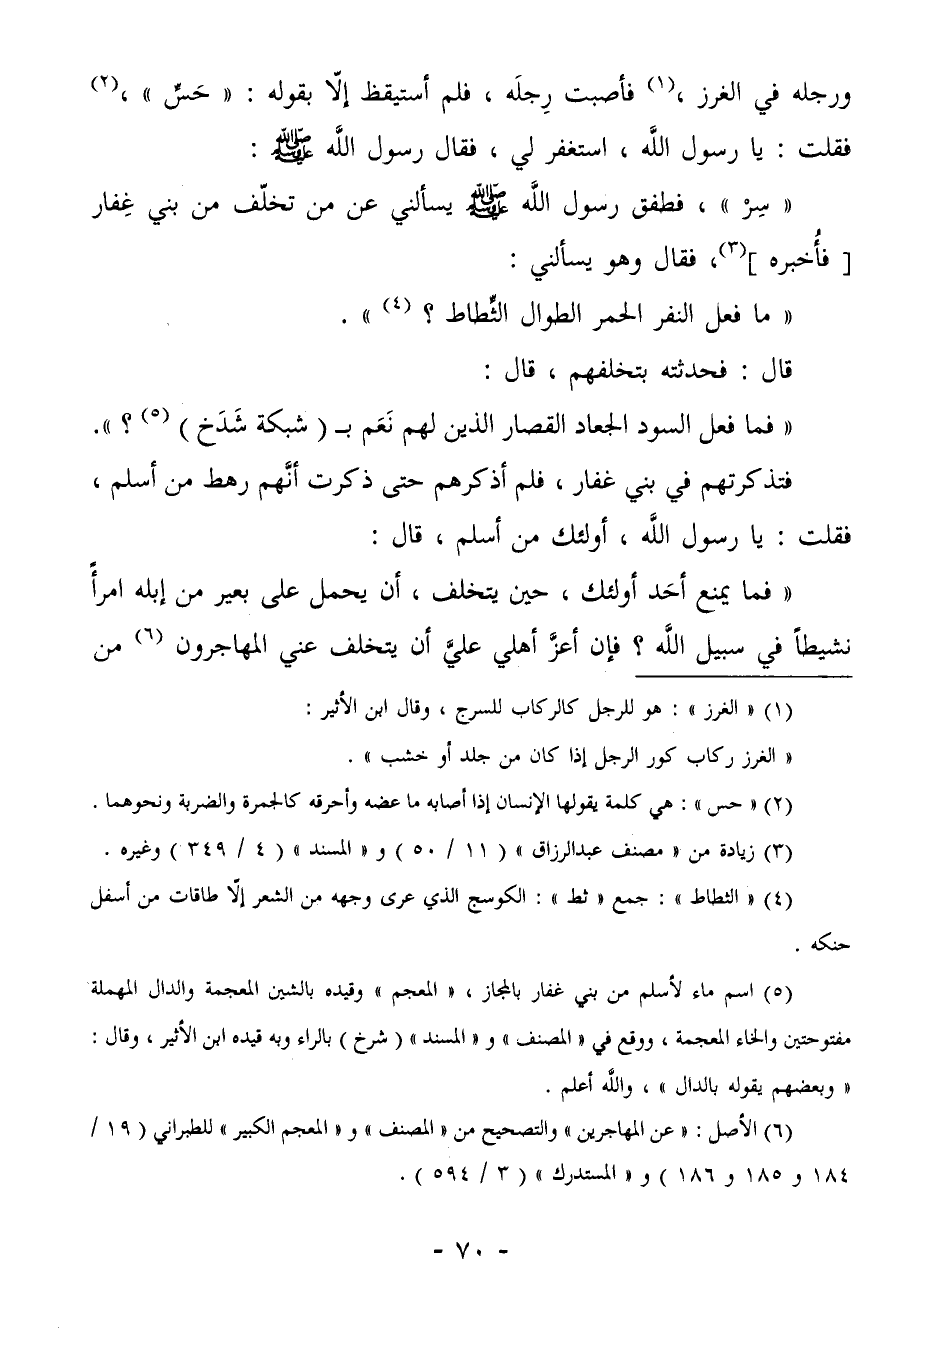 ورجله في الغرز ،(١) فأصبت رِجلَه ، فلم أستيقظ إلّا بقوله : « حَسِّ » ،(٢)
فقلت : يا رسول اللَّه ، استغفر لي ، فقال رسول اللَّه ﷺ :
« سِرْ » ، فطفق رسول اللَّه ﷺ يسألني عن من تخلّف من بني غِفار
[ فأُخبره ](٣)، فقال وهو يسألني :
« ما فعل النفر الحمر الطوال الثِّطاط ؟ (٤) » .
قال : فحدثته بتخلفهم ، قال :
« فما فعل السود الجعاد القصار الذين لهم نَعَم بـ ( شبكة شَدَخ ) (٥) ؟ ».
فتذكرتهم في بني غفار ، فلم أذكرهم حتى ذكرت أنَّهم رهط من أسلم ،
فقلت : يا رسول اللَّه ، أولئك من أسلم ، قال :
« فما يمنع أحَد أولئك ، حين يتخلف ، أن يحمل على بعير من إبله امرأً
نشيطاً في سبيل اللَّه ؟ فإن أعزَّ أهلي عليَّ أن يتخلف عني المهاجرون (٦) من
(١) « الغرز » : هو للرجل كالركاب للسرج ، وقال ابن الأثير :
« الغرز ركاب كور الرجل إذا كان من جلد أو خشب » .
(٢) « حس » : هي كلمة يقولها الإنسان إذا أصابه ما عضه وأحرقه كالجمرة والضربة ونحوهما .
(٣) زيادة من « مصنف عبدالرزاق » ( ١١ / ٥٠ ) و « المسند » ( ٤ / ٣٤٩ ) وغيره .
(٤) « الثطاط » : جمع « ثط » : الكوسج الذي عرى وجهه من الشعر إلّا طاقات من أسفل
حنكه .
(٥) اسم ماء لأسلم من بني غفار بالمجاز ، « المعجم » وقيده بالشين المعجمة والدال المهملة
مفتوحتين والخاء المعجمة ، ووقع في « المصنف » و « المسند » ( شرخ ) بالراء وبه قيده ابن الأثير ، وقال :
« وبعضهم يقوله بالدال » ، واللَّه أعلم .
(٦) الأصل : « عن المهاجرين » والتصحيح من « المصنف » و « المعجم الكبير » للطبراني ( ١٩ /
١٨٤ و ١٨٥ و ١٨٦ ) و « المستدرك » ( ٣ / ٥٩٤ ) .
- ٧٠ -